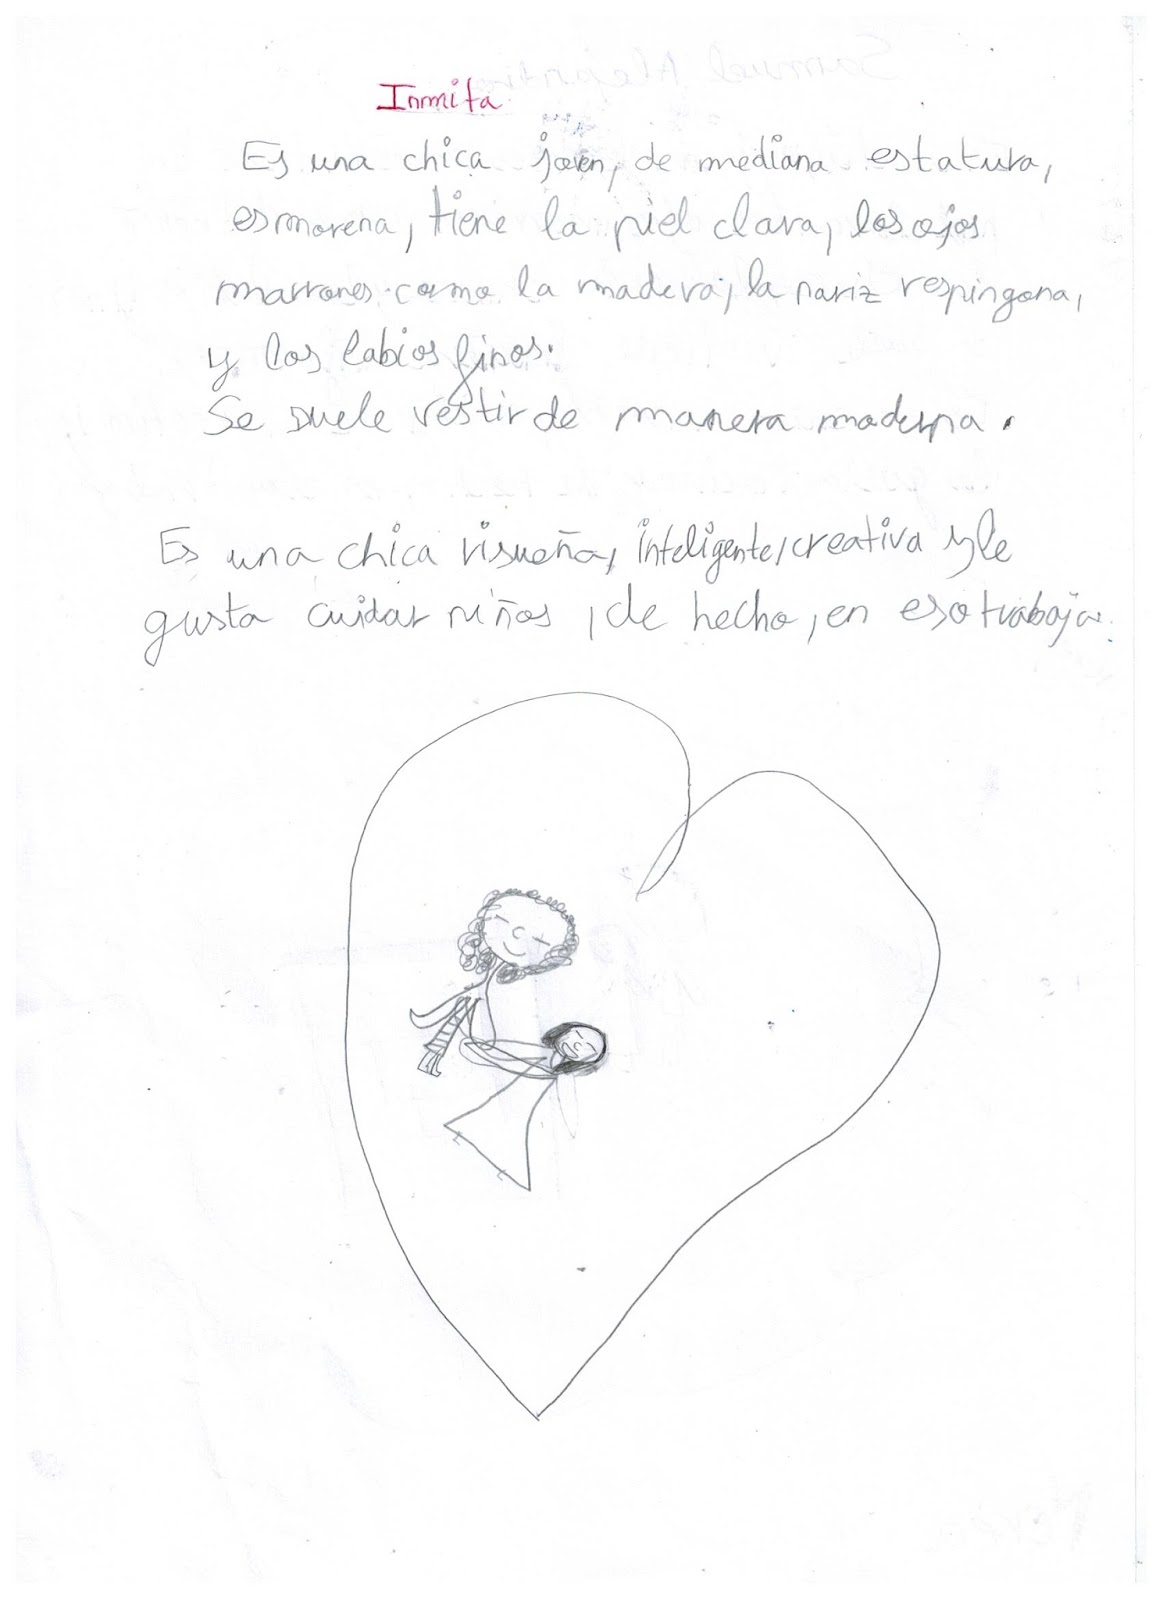 Inmita
Es una chica joven, de mediana estatura,
es morena, tiene la piel clara, los ojos
marrones como la madera, la nariz respingona,
y los labios finos.
Se suele vestir de manera moderna.
Es una chica risueña, inteligente, creativa y le
gusta cuidar niños, de hecho, en eso trabaja.